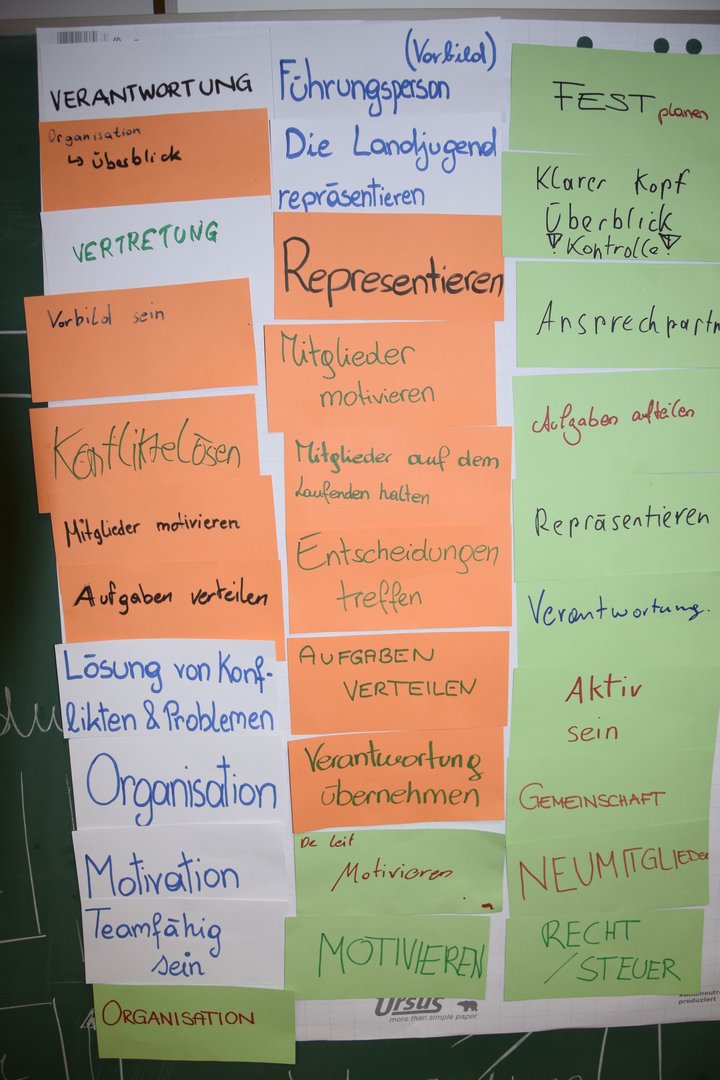 VERANTWORTUNG
Organisation
↳ Überblick
VERTRETUNG
Vorbild sein
Konflikte lösen
Mitglieder motivieren
Aufgaben verteilen
Lösung von Konf-
likten & Problemen
Organisation
Motivation
Teamfähig
sein
ORGANISATION
(Vorbild)
Führungsperson
Die Landjugend
repräsentieren
Representieren
Mitglieder
motivieren
Mitglieder auf dem
Laufenden halten
Entscheidungen
treffen
AUFGABEN
VERTEILEN
Verantwortung
übernehmen
De leit
Motivieren
MOTIVIEREN
Ursus
more than simple paper
FEST planen
Klarer Kopf
Überblick
Kontrolle
Ansprechpartn
Aufgaben aufteilen
Repräsentieren
Verantwortung.
Aktiv
sein
GEMEINSCHAFT
NEUMITGLIEDER
RECHT
/STEUER
produziert